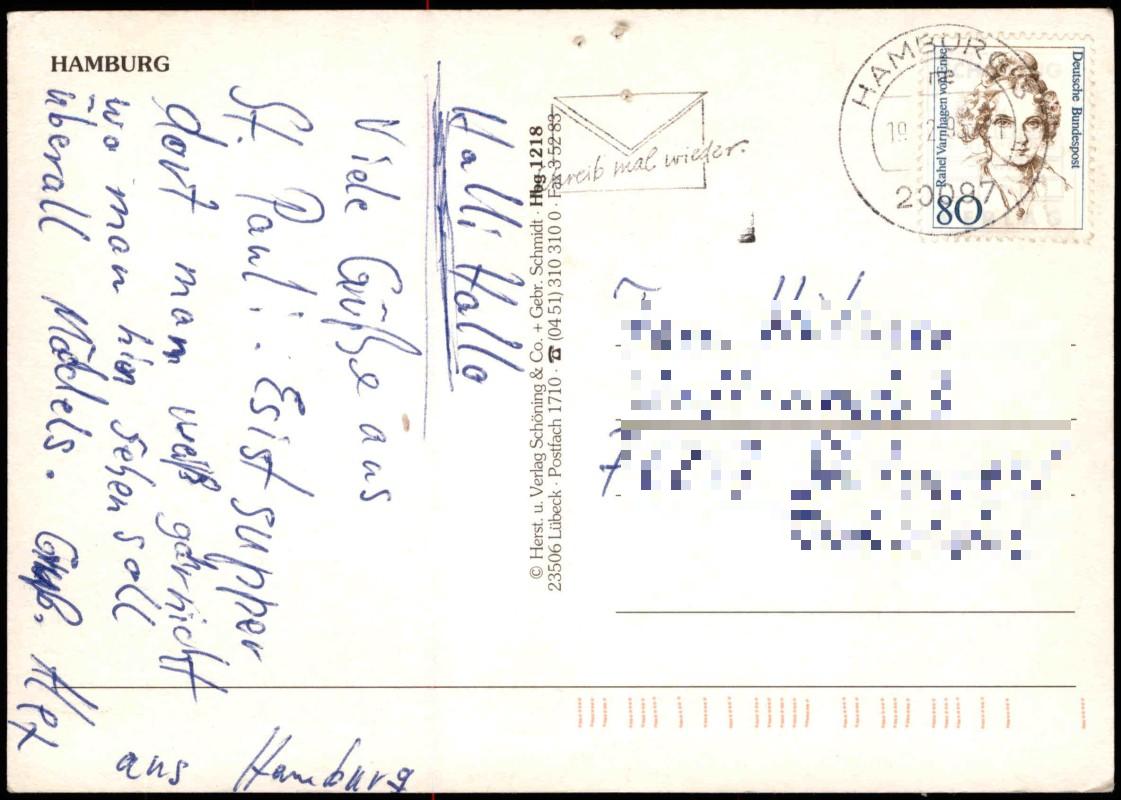 HAMBURG
Halli Hallo
Viele Grüße aus
St. Pauli. Es ist supper
dort man weiß garnicht
wo man hin sehen soll
überall Mädels. Gruß. Alex
aus Hamburg
© Herst. u. Verlag Schöning & Co. + Gebr. Schmidt · Hbg 1218
23506 Lübeck · Postfach 1710 · ☎ (04 51) 310 310 0 · Fax 3 52 83
schreib mal wieder.
HAMBURG
20087
Deutsche Bundespost
Rahel Varnhagen von Ense
80